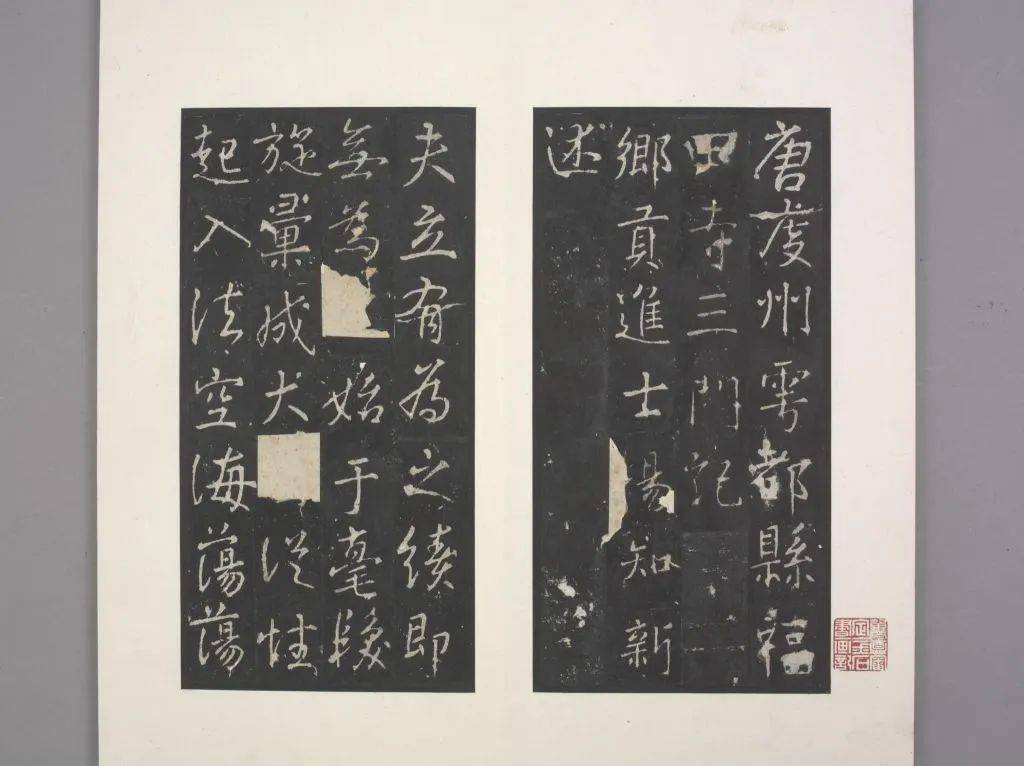 唐虔州雩都縣福
田寺三門記
鄉貢進士知新
述
夫立有為之績即
無為始于毫髮
旋成犬從性
起入法空海蕩蕩